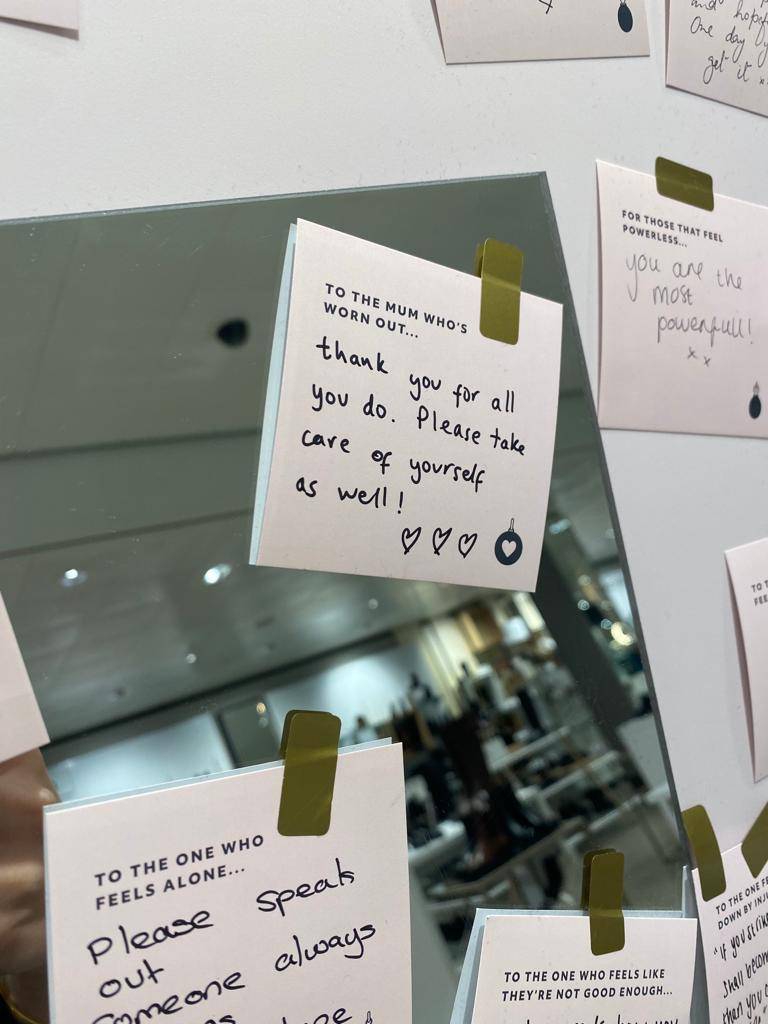 and hopef
One day y
get it x
FOR THOSE THAT FEEL
POWERLESS...
you are the
most
powerfull!
x x
TO THE MUM WHO'S
WORN OUT...
thank you for all
you do. Please take
care of yourself
as well!
TO T
FEE
TO THE ONE WHO
FEELS ALONE...
Please speak
out
Someone always
TO THE ONE WHO FEELS LIKE
THEY'RE NOT GOOD ENOUGH...
TO THE ONE FE
DOWN BY INJU
"If you strike
shall becom
than you c